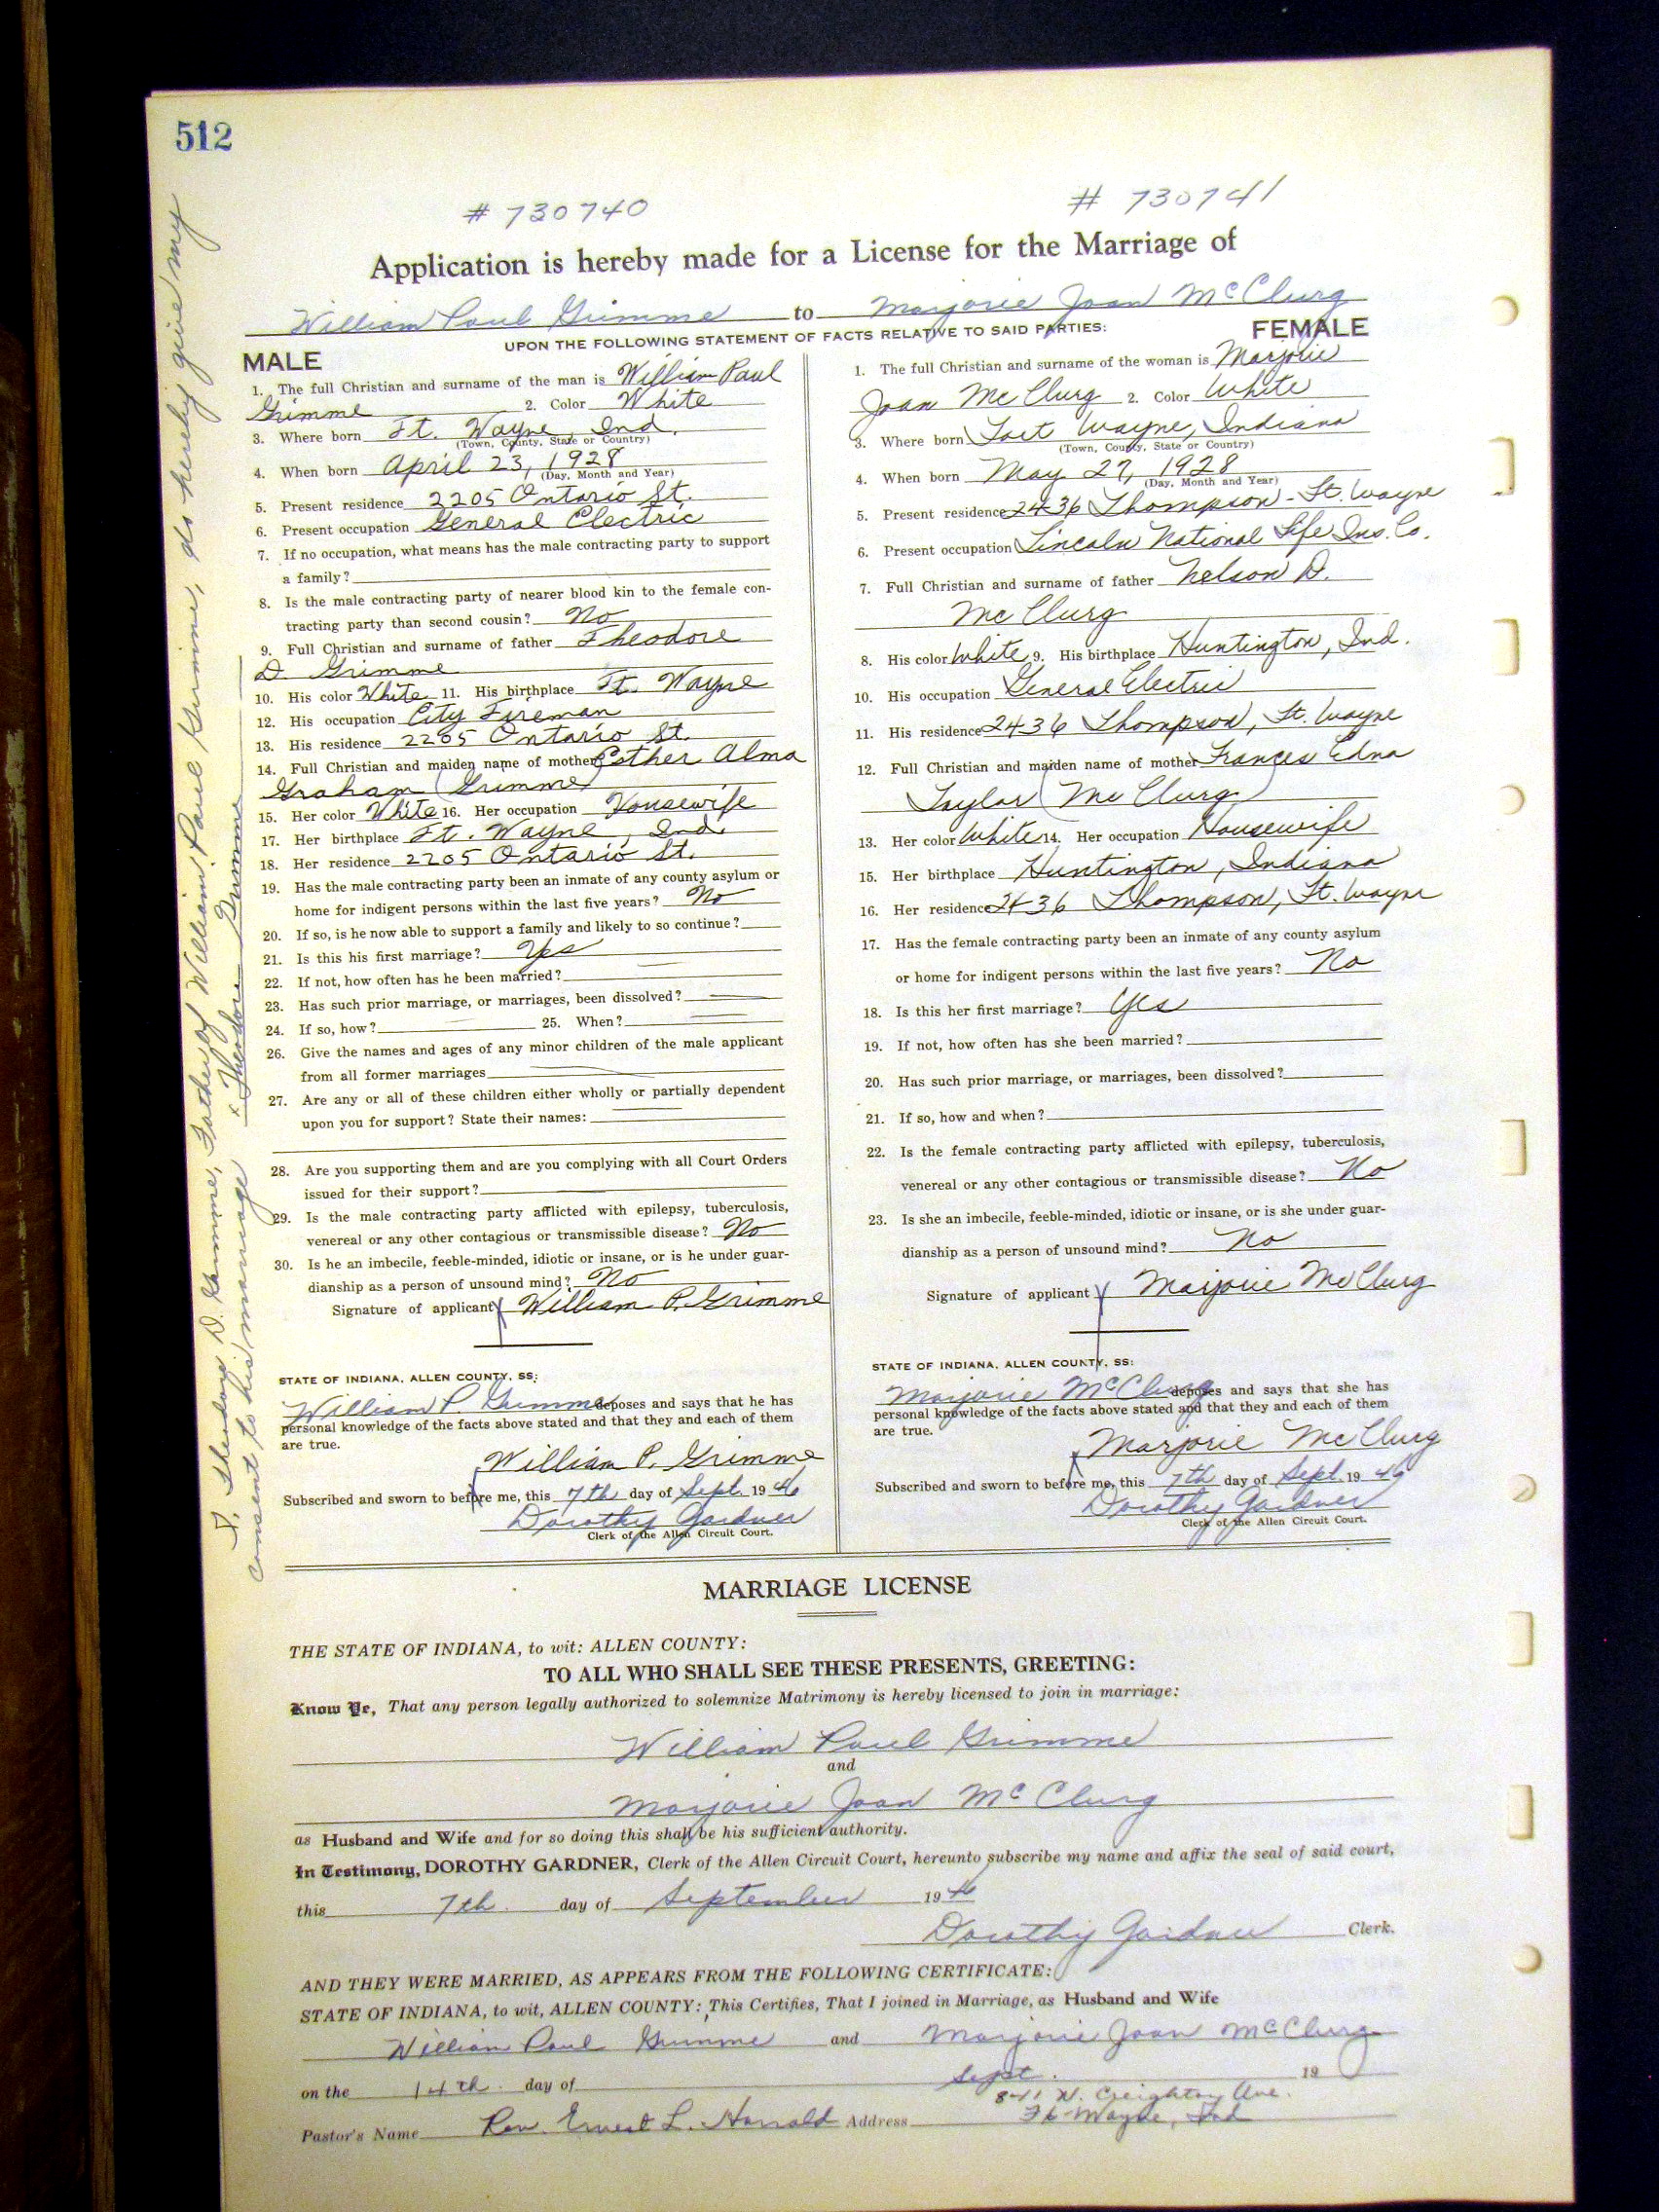 512
# 730740
# 730741
Application is hereby made for a License for the Marriage of
William Paul Grimme to Marjorie Joan McClurg
UPON THE FOLLOWING STATEMENT OF FACTS RELATIVE TO SAID PARTIES:
MALE
1. The full Christian and surname of the man is William Paul
Grimme 2. Color White
3. Where born Ft. Wayne, Ind.
(Town, County, State or Country)
4. When born April 23, 1928
(Day, Month and Year)
5. Present residence 2205 Ontario St.
6. Present occupation General Electric
7. If no occupation, what means has the male contracting party to support
a family?
8. Is the male contracting party of nearer blood kin to the female con-
tracting party than second cousin? No
9. Full Christian and surname of father Theodore
D. Grimme
10. His color White 11. His birthplace Ft. Wayne
12. His occupation City Fireman
13. His residence 2205 Ontario St.
14. Full Christian and maiden name of mother Esther Alma
Graham (Grimme)
15. Her color White 16. Her occupation Housewife
17. Her birthplace Ft. Wayne, Ind.
18. Her residence 2205 Ontario St.
19. Has the male contracting party been an inmate of any county asylum or
home for indigent persons within the last five years? No
20. If so, is he now able to support a family and likely to so continue?
21. Is this his first marriage? Yes
22. If not, how often has he been married?
23. Has such prior marriage, or marriages, been dissolved?
24. If so, how? 25. When?
26. Give the names and ages of any minor children of the male applicant
from all former marriages
27. Are any or all of these children either wholly or partially dependent
upon you for support? State their names:
28. Are you supporting them and are you complying with all Court Orders
issued for their support?
29. Is the male contracting party afflicted with epilepsy, tuberculosis,
venereal or any other contagious or transmissible disease? No
30. Is he an imbecile, feeble-minded, idiotic or insane, or is he under guar-
dianship as a person of unsound mind? No
Signature of applicant William P. Grimme
STATE OF INDIANA, ALLEN COUNTY, SS:
William P Grimme deposes and says that he has
personal knowledge of the facts above stated and that they and each of them
are true.
William P. Grimme
Subscribed and sworn to before me, this 7th day of Sept. 1946
Dorothy Gardner
Clerk of the Allen Circuit Court.
FEMALE
1. The full Christian and surname of the woman is Marjorie
Joan McClurg 2. Color White
3. Where born Fort Wayne, Indiana
(Town, County, State or Country)
4. When born May 27, 1928
(Day, Month and Year)
5. Present residence 2436 Thompson - Ft. Wayne
6. Present occupation Lincoln National Life Ins. Co.
7. Full Christian and surname of father Nelson D.
McClurg
8. His color White 9. His birthplace Huntington, Ind.
10. His occupation General Electric
11. His residence 2436 Thompson, Ft. Wayne
12. Full Christian and maiden name of mother Frances Edna
Taylor (McClurg)
13. Her color White 14. Her occupation Housewife
15. Her birthplace Huntington, Indiana
16. Her residence 2436 Thompson, Ft. Wayne
17. Has the female contracting party been an inmate of any county asylum
or home for indigent persons within the last five years? No
18. Is this her first marriage? Yes
19. If not, how often has she been married?
20. Has such prior marriage, or marriages, been dissolved?
21. If so, how and when?
22. Is the female contracting party afflicted with epilepsy, tuberculosis,
venereal or any other contagious or transmissible disease? No
23. Is she an imbecile, feeble-minded, idiotic or insane, or is she under guar-
dianship as a person of unsound mind? No
Signature of applicant Marjorie McClurg
STATE OF INDIANA, ALLEN COUNTY, SS:
Marjorie McClurg deposes and says that she has
personal knowledge of the facts above stated and that they and each of them
are true.
Marjorie McClurg
Subscribed and sworn to before me, this 7th day of Sept. 1946
Dorothy Gardner
Clerk of the Allen Circuit Court.
I, Theodore D. Grimme, Father of William Paul Grimme, do hereby give my
consent to his marriage
x Theodore Grimme
MARRIAGE LICENSE
THE STATE OF INDIANA, to wit: ALLEN COUNTY:
TO ALL WHO SHALL SEE THESE PRESENTS, GREETING:
Know Ye, That any person legally authorized to solemnize Matrimony is hereby licensed to join in marriage:
William Paul Grimme
and
Marjorie Joan McClurg
as Husband and Wife and for so doing this shall be his sufficient authority.
In Testimony, DOROTHY GARDNER, Clerk of the Allen Circuit Court, hereunto subscribe my name and affix the seal of said court,
this 7th day of September 1946
Dorothy Gardner Clerk.
AND THEY WERE MARRIED, AS APPEARS FROM THE FOLLOWING CERTIFICATE:
STATE OF INDIANA, to wit, ALLEN COUNTY: This Certifies, That I joined in Marriage, as Husband and Wife
William Paul Grimme and Marjorie Joan McClurg
on the 14th day of Sept. 19
841 W. Creighton Ave.
Pastor's Name Rev. Ernest L. Harrald Address Ft Wayne, Ind